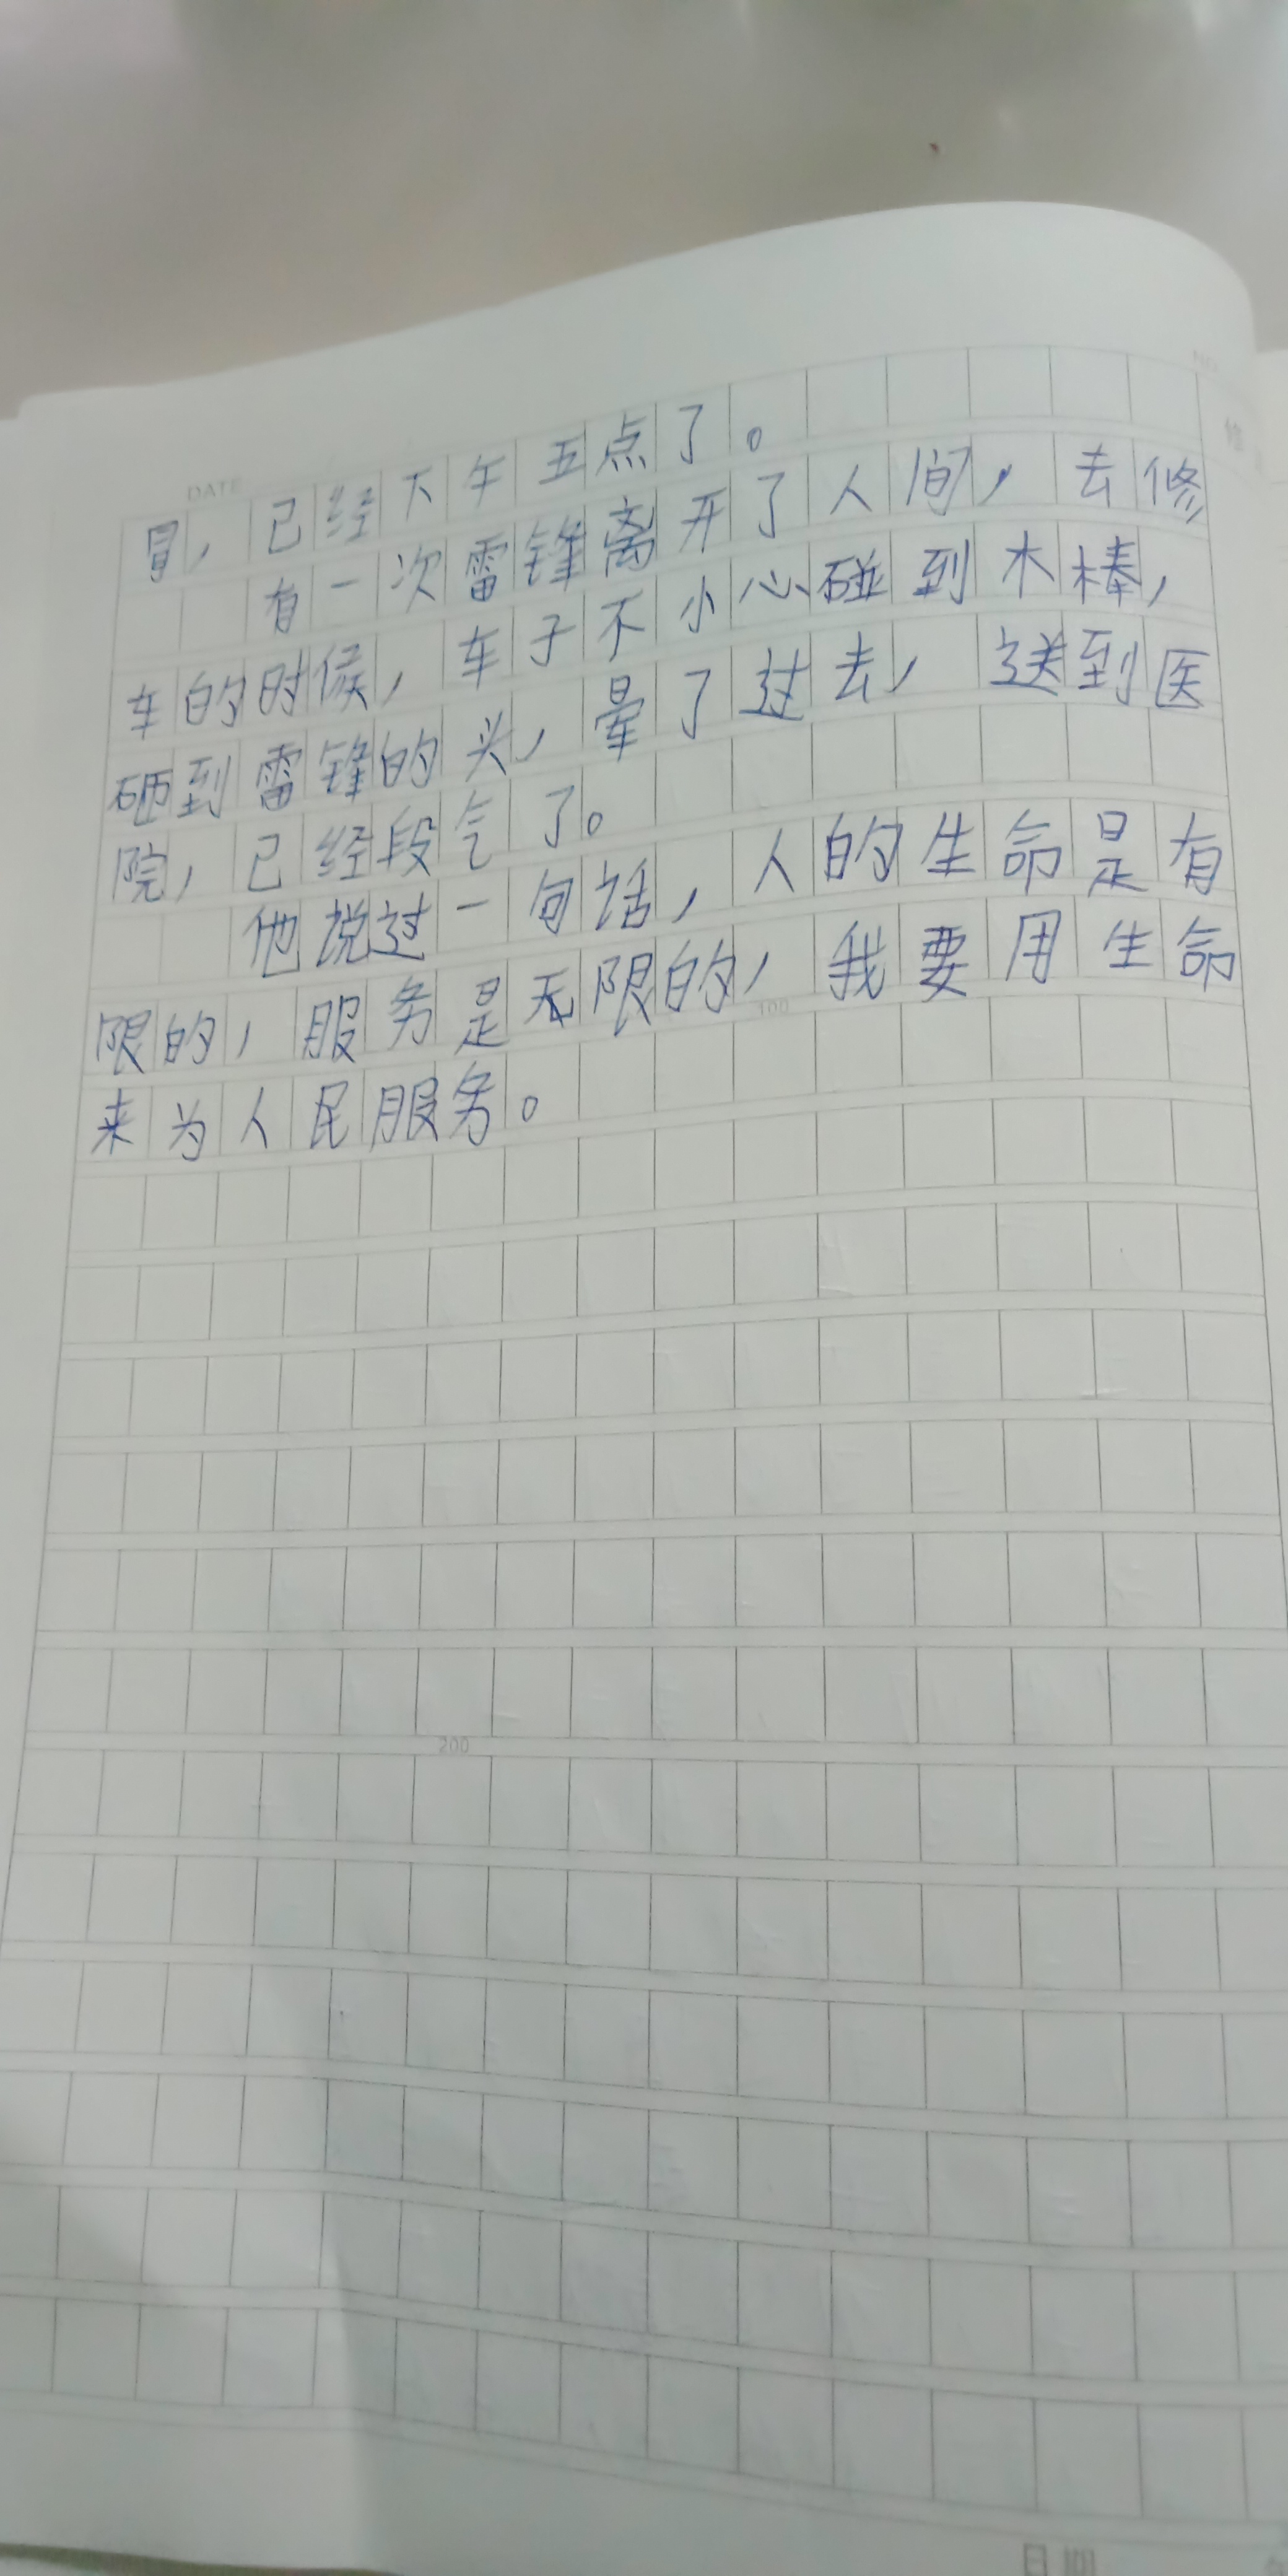 DATE
冒，已经下午五点了。
有一次雷锋离开了人间，去修
车的时候，车子不小心碰到木棒，
砸到雷锋的头，晕了过去，送到医
院，已经段气了。
他说过一句话，人的生命是有
限的，服务是无限的，我要用生命
100
来为人民服务。
200
日期